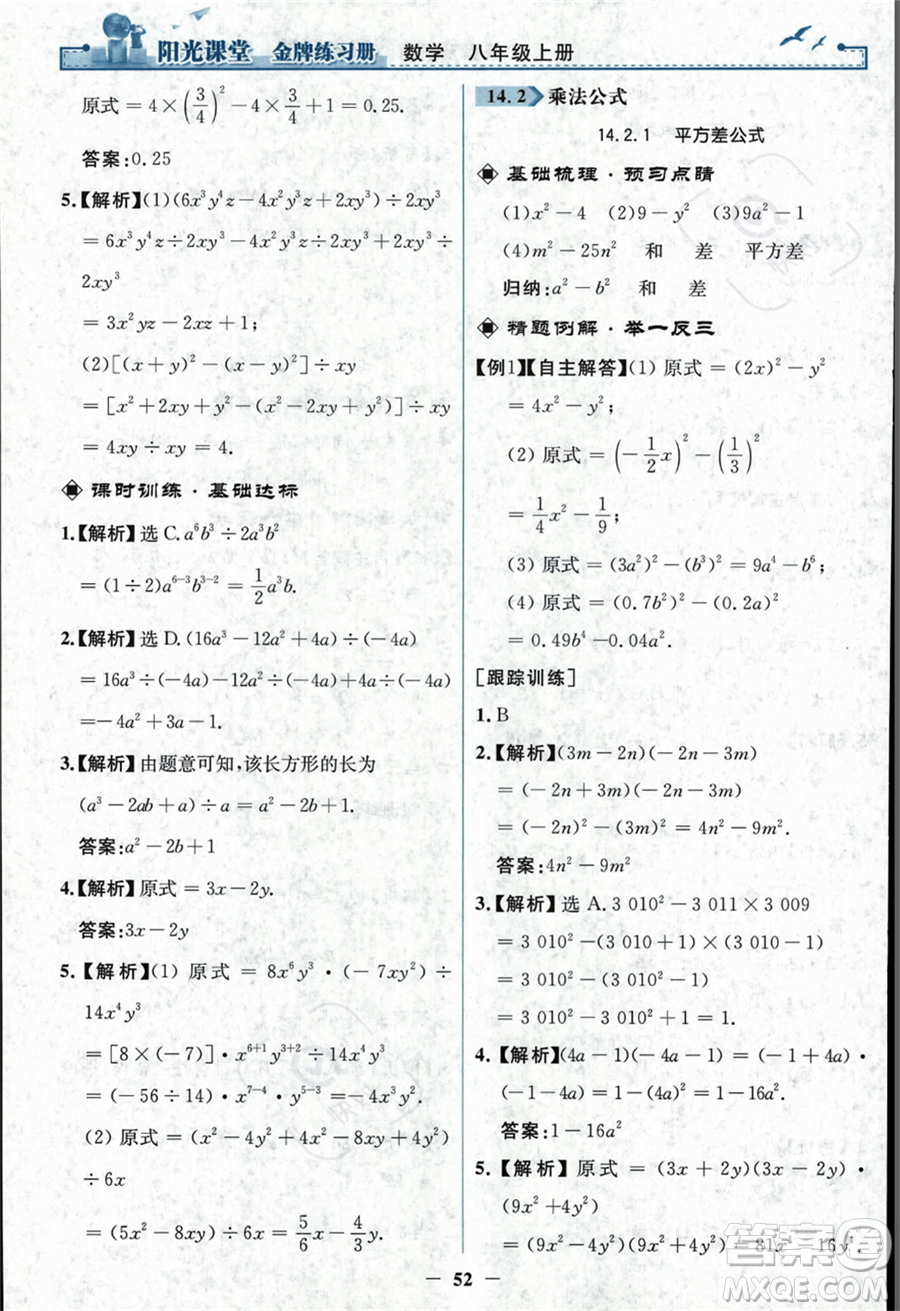 阳光课堂 金牌练习册 数学 八年级上册
原式=4×(3/4)²-4×3/4+1=0.25.
答案:0.25
5.【解析】(1)(6x³y⁴z-4x²y³z+2xy³)÷2xy³
=6x³y⁴z÷2xy³-4x²y³z÷2xy³+2xy³÷
2xy³
=3x²yz-2xz+1;
(2)[(x+y)²-(x-y)²]÷xy
=[x²+2xy+y²-(x²-2xy+y²)]÷xy
=4xy÷xy=4.
课时训练·基础达标
1.【解析】选C.a⁶b³÷2a³b²
=(1÷2)a⁶⁻³b³⁻²=1/2a³b.
2.【解析】选D.(16a³-12a²+4a)÷(-4a)
=16a³÷(-4a)-12a²÷(-4a)+4a÷(-4a)
=-4a²+3a-1.
3.【解析】由题意可知,该长方形的长为
(a³-2ab+a)÷a=a²-2b+1.
答案:a²-2b+1
4.【解析】原式=3x-2y.
答案:3x-2y
5.【解析】(1)原式=8x⁶y³·(-7xy²)÷
14x⁴y³
=[8×(-7)]·x⁶⁺¹y³⁺²÷14x⁴y³
=(-56÷14)·x⁷⁻⁴·y⁵⁻³=-4x³y².
(2)原式=(x²-2xy+4x²-6xy)
÷6x
=(5x²-8xy)÷6x=5/6x-4/3y.
14.2 乘法公式
14.2.1 平方差公式
基础梳理·预习点睛
(1)x²-4 (2)9-y² (3)9a²-1
(4)m²-25n² 和 差 平方差
归纳:a²-b² 和 差
精题例解·举一反三
【例1】【自主解答】(1)原式=(2x)²-y²
=4x²-y²;
(2)原式=(-1/2x)²-(1/3)²
=1/4x²-1/9;
(3)原式=(3a²)²-(b³)²=9a⁴-b⁶;
(4)原式=(0.7b²)²-(0.2a)²
=0.49b⁴-0.04a².
[跟踪训练]
1.B
2.【解析】(3m-2n)(-2n-3m)
=(-2n+3m)(-2n-3m)
=(-2n)²-(3m)²=4n²-9m².
答案:4n²-9m²
3.【解析】选A.3 010²-3 011×3 009
=3 010²-(3 010+1)×(3 010-1)
=3 010²-(3 010²-1)
=3 010²-3 010²+1=1.
4.【解析】(4a-1)(-4a-1)=(-1+4a)·
(-1-4a)=(-1)²-(4a)²=1-16a².
答案:1-16a²
5.【解析】原式=(3x+2y)(3x-2y)·
(9x²+4y²)
=(9x²-4y²)(9x²+4y²)=81x⁴-16y⁴.
52
答案圈
MXQE.COM